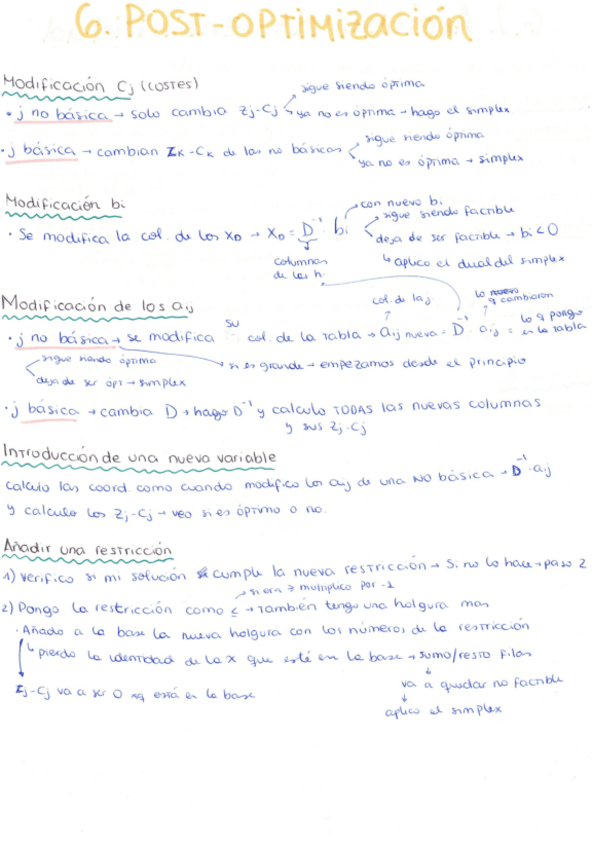 6. POST-OPTIMIZACIÓN
Modificación Cj (COSTES)
• j no básica → solo cambia Zj-Cj
sigue siendo óptima
ya no es óptima → hago el simplex
• j básica → cambian ZK-CK de las no básicas
sigue siendo óptima
ya no es óptima → simplex
Modificación bi
con nuevo bi
• Se modifica la col. de los XD → XD = D⁻¹ · bi
sigue siendo factible
deja de ser factible → bi<0
↳ aplico el dual del simplex
columnas
de las h.
Modificación de los aij
col. de la j
lo q cambiaron
• j no básica → se modifica su col. de la tabla → aij nueva = D⁻¹ · aij = lo q pongo en la tabla
sigue siendo óptima
deja de ser ópt → simplex
si es grande → empezamos desde el principio
• j básica → cambia D → hago D⁻¹ y calculo TODAS las nuevas columnas
y sus Zj-Cj
Introducción de una nueva variable
Calculo las coord. como cuando modifico los aij de una NO básica → D⁻¹ · aij
y calculo los Zj-Cj → veo si es óptimo o no.
Añadir una restricción
1) Verifico si mi solución cumple la nueva restricción → Si no lo hace → paso 2
si era ≥ multiplico por -1
2) Pongo la restricción como ≤ → También tengo una holgura mas
• Añado a la base la nueva holgura con los números de la restricción
↳ pierdo la identidad de la x que esté en la base → sumo/resto filas
Zj-Cj va a ser 0 xq está en la base
va a quedar no factible
aplico el simplex